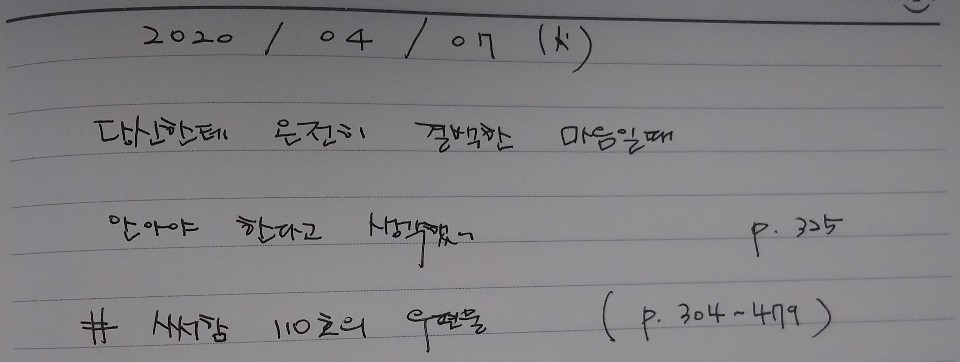 2020 / 04 / 07 (火)
당신한테 온전히 결백한 마음일때
안아야 한다고 생각했어 p. 325
# 사서함 110호의 우편물 (p. 304~479)